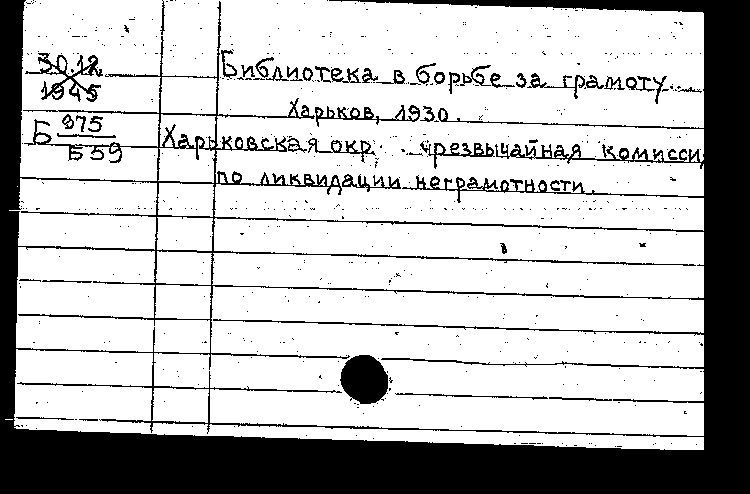 30.12
1945
Б 375
Б 59
Библиотека в борьбе за грамоту.
Харьков, 1930.
Харьковская окр. чрезвычайная комисси
по ликвидации неграмотности.